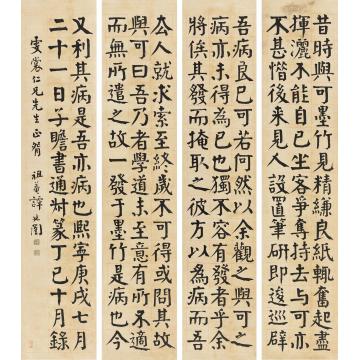 昔時與可墨竹見精縑良紙輒奮起盡
揮灑不能自已坐客爭奪持去與可亦
不甚惜後來見人設置筆研即逡巡辟
吾病良已可若何然以余觀之與可之
病亦未得為已也獨不容有發者乎余
將俟其發而掩取之彼方以為病而吾
去人就求索至終歲不可得或問其故
與可曰吾乃者學道未至意有所不
而無所遣之故一發于墨竹是病也今
又利其病是吾亦病也熙寧庚戌七月
二十一日子瞻書通篆丁巳十月錄
雯裳仁兄先生正 祖菴譚延闓